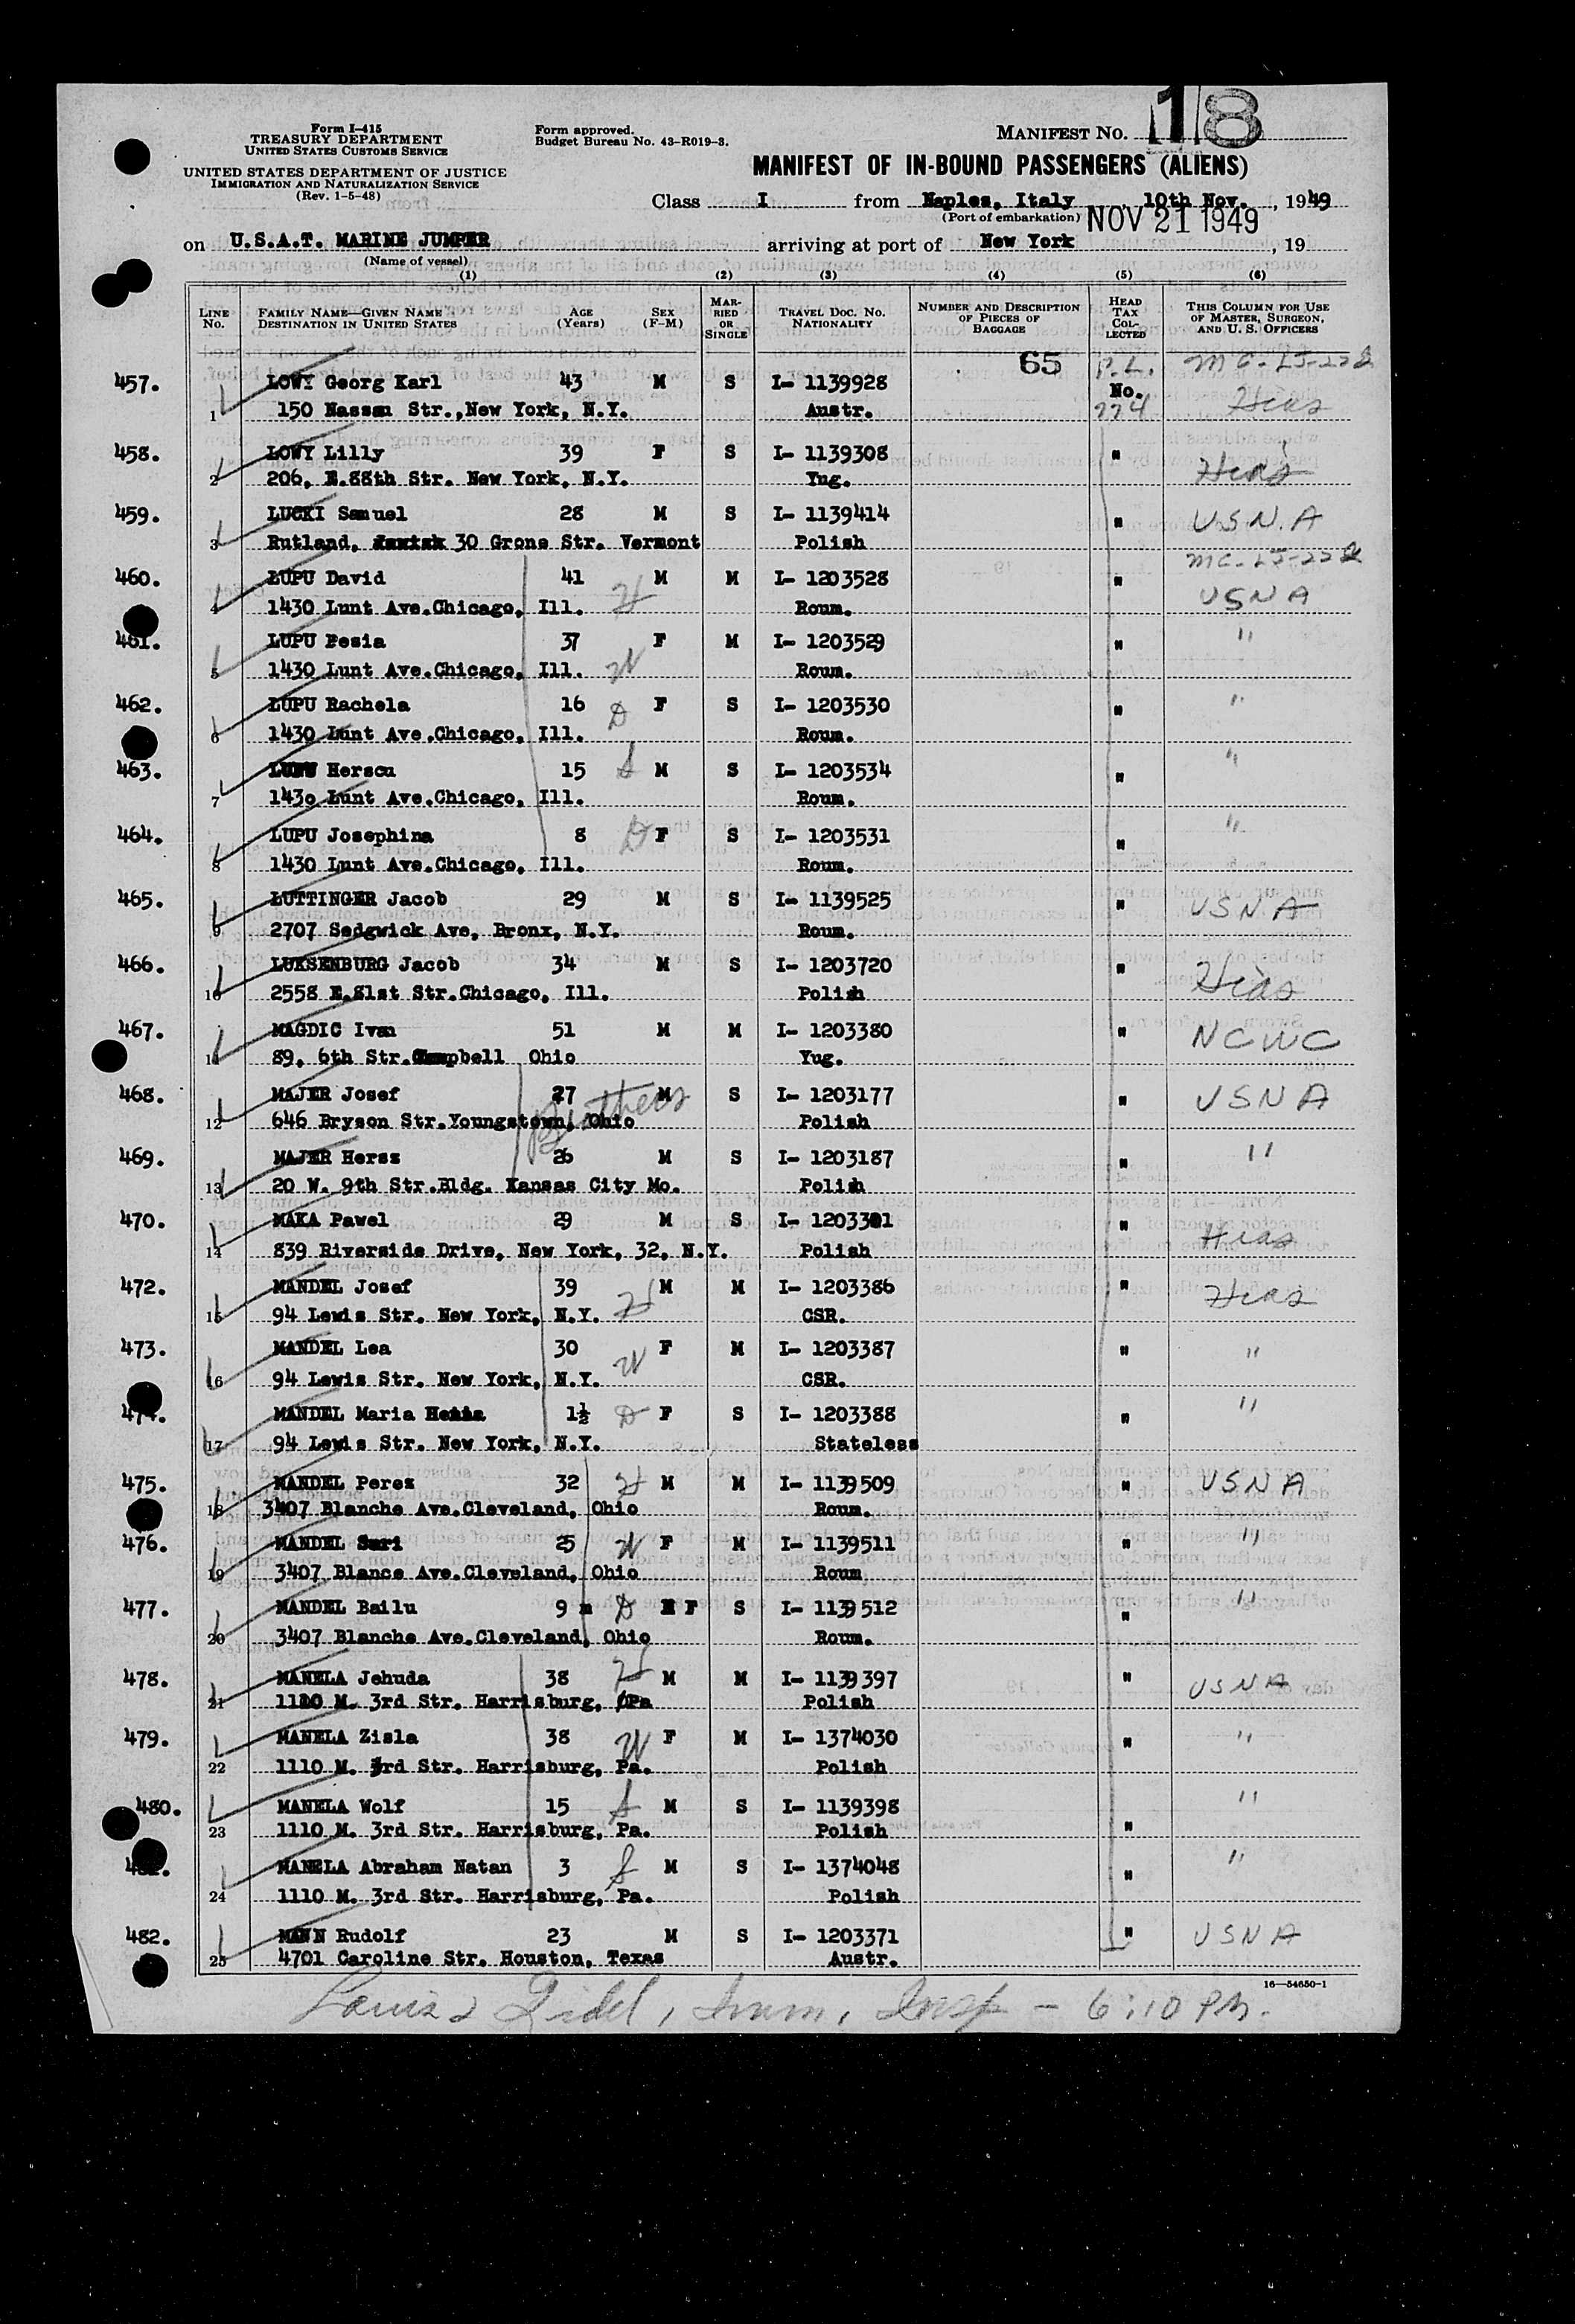 Form I-415
TREASURY DEPARTMENT
UNITED STATES CUSTOMS SERVICE
UNITED STATES DEPARTMENT OF JUSTICE
IMMIGRATION AND NATURALIZATION SERVICE
(Rev. 1-5-48)
Form approved.
Budget Bureau No. 43-R019-3.
MANIFEST NO. 18
MANIFEST OF IN-BOUND PASSENGERS (ALIENS)
Class I from Naples, Italy, 10th Nov., 1949
(Port of embarkation)
NOV 21 1949
on U.S.A.T. MARINE JUMPER arriving at port of New York, 19
(Name of vessel)
(1) (2) (3) (4) (5) (6)
LINE No. FAMILY NAME—GIVEN NAME DESTINATION IN UNITED STATES AGE (Years) SEX (F-M) MARRIED OR SINGLE TRAVEL DOC. NO. NATIONALITY NUMBER AND DESCRIPTION OF PIECES OF BAGGAGE HEAD TAX COLLECTED THIS COLUMN FOR USE OF MASTER, SURGEON, AND U. S. OFFICERS
65 P.L.
457. LOWY Georg Karl 43 M S I- 1139928 No.
1 150 Nassau Str.,New York, N.Y. Austr. 774 Hias
458. LOWY Lilly 39 F S I- 1139308 "
2 206, E.88th Str. New York, N.Y. Yug. Hias
459. LUCKI Samuel 28 M S I- 1139414 " USN.A
3 Rutland, 30 Grone Str. Vermont Polish
460. LUPU David 41 M M I- 1203528 "
4 1430 Lunt Ave.Chicago, Ill. H Roum. USNA
461. LUPU Pesia 37 F M I- 1203529 " "
5 1430 Lunt Ave.Chicago, Ill. W Roum.
462. LUPU Rachela 16 D F S I- 1203530 " "
6 1430 Lunt Ave.Chicago, Ill. Roum.
463. LUPU Herscu 15 S M S I- 1203534 " "
7 143o Lunt Ave.Chicago, Ill. Roum.
464. LUPU Josephina 8 D F S I- 1203531 " "
8 1430 Lunt Ave.Chicago, Ill. Roum.
465. LUTTINGER Jacob 29 M S I- 1139525 " USNA
9 2707 Sedgwick Ave, Bronx, N.Y. Roum.
466. LUKSENBURG Jacob 34 M S I- 1203720 " Hias
10 2558 E.81st Str.Chicago, Ill. Polish
467. MAGDIC Ivan 51 M M I- 1203380 " NCWC
11 89, 6th Str.Campbell Ohio Yug.
468. MAJER Josef 27 M S I- 1203177 " USNA
12 646 Bryson Str.Youngstown, Ohio Brothers Polish
469. MAJER Hersz 26 M S I- 1203187 " "
13 20 W. 9th Str.Bldg. Kansas City Mo. Polish
470. MAKA Pawel 29 M S I- 1203301 " Hias
14 839 Riverside Drive, New York, 32, N.Y. Polish
472. MANDEL Josef 39 M M I- 1203386 " Hias
15 94 Lewis Str. New York, N.Y. H CSR.
473. MANDEL Lea 30 F M I- 1203387 " "
16 94 Lewis Str. New York, N.Y. W CSR.
474. MANDEL Maria 1½ D F S I- 1203388 " "
17 94 Lewis Str. New York, N.Y. Stateless
475. MANDEL Perez 32 H M M I- 1139509 " USNA
18 3407 Blanche Ave.Cleveland, Ohio Roum.
476. MANDEL Sari 25 W F M I- 1139511 " "
19 3407 Blance Ave.Cleveland, Ohio Roum
477. MANDEL Bailu 9 m D F S I- 1139512 " "
20 3407 Blanche Ave.Cleveland, Ohio Roum.
478. MANELA Jehuda 38 H M M I- 1139397 " USNA
21 1110 M. 3rd Str. Harrisburg, Pa Polish
479. MANELA Zisla 38 W F M I- 1374030 " "
22 1110 M. 3rd Str. Harrisburg, Pa. Polish
480. MANELA Wolf 15 S M S I- 1139398 " "
23 1110 M. 3rd Str. Harrisburg, Pa. Polish
MANELA Abraham Natan 3 S M S I- 1374048 " "
24 1110 M. 3rd Str. Harrisburg, Pa. Polish
482. MANN Rudolf 23 M S I- 1203371 " USNA
25 4701 Caroline Str. Houston, Texas Austr.
16—54650-1
Imm, Insp - 6:10 PM.